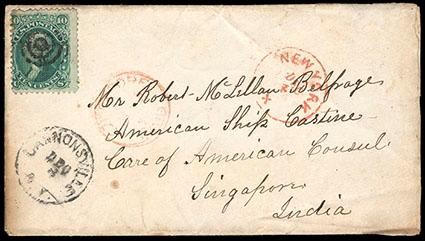 10 10
U.S. POSTAGE
TEN CENTS
NEW YORK
DEC
Mr Robert McLellan Belfrage
American Ship Castine
Care of American Consul
Singapore
India
CANNONSVILLE
DEC
N.Y.